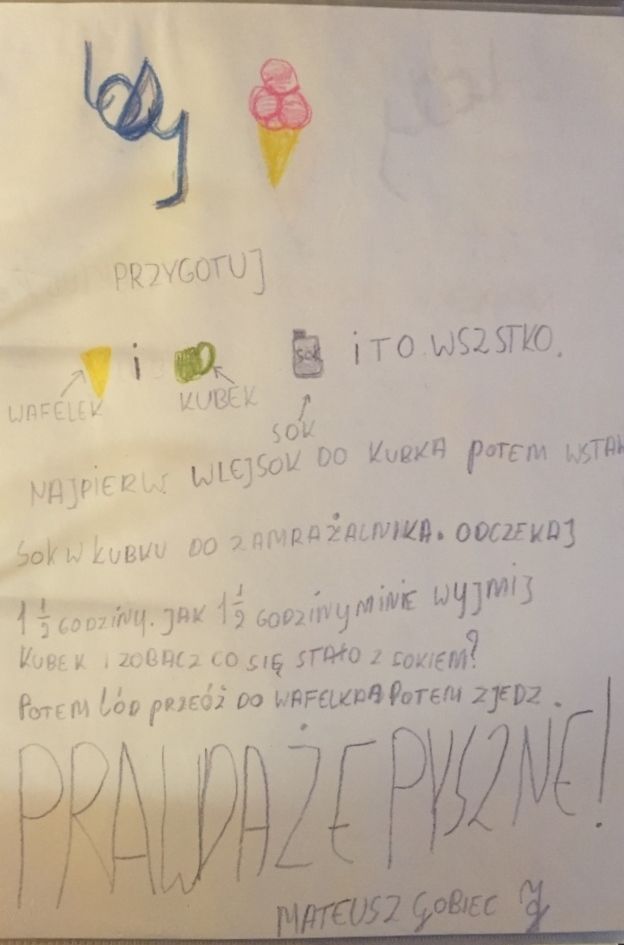 lody
PRZYGOTUJ
i SOK i TO WSZSTKO.
WAFELEK KUBEK
SOK
NAJPIERW WLEJ SOK DO KUBKA POTEM WSTAW
SOK W KUBKU DO ZAMRAŻALNIKA. ODCZEKAJ
1 1/2 GODZINY. JAK 1 1/2 GODZINY MINIE WYJMIJ
KUBEK I ZOBACZ CO SIĘ STAŁO Z SOKIEM?
POTEM LÓD PRZEÓŻ DO WAFELKA A POTEM ZJEDZ.
PRAWDA ŻE PYSZNE!
MATEUSZ GOBIEC